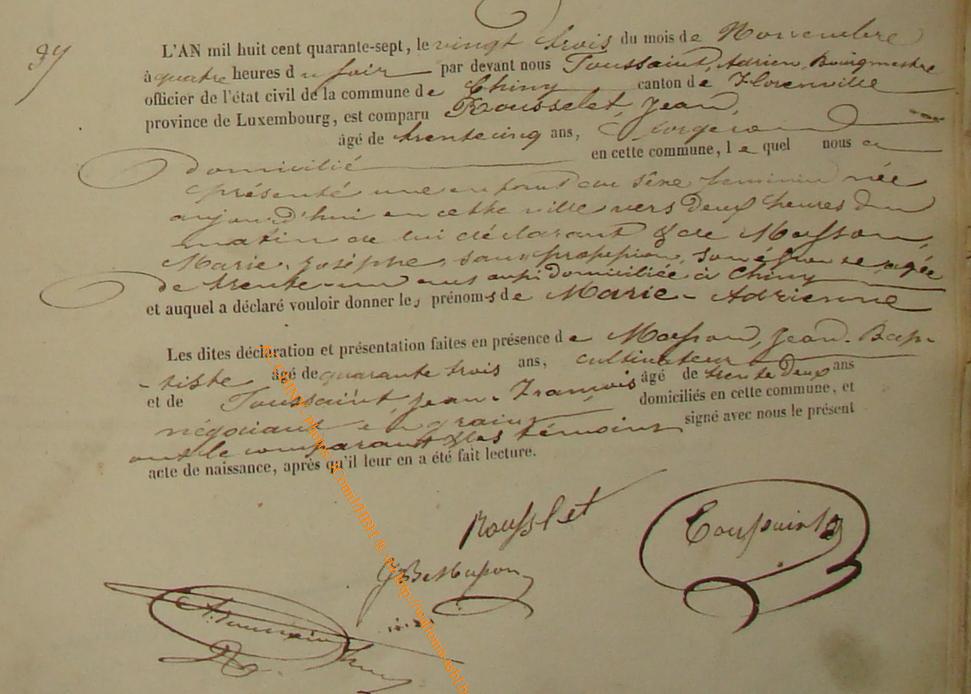 37
L'AN mil huit cent quarante-sept, le vingt trois du mois de Novembre
à quatre heures du soir par devant nous Toussaint, Adrien, Bourgmestre
officier de l'état civil de la commune de Chiny canton de Florenville
province de Luxembourg, est comparu Rousselet, Jean,
âgé de trente cinq ans, forgeron
domicilié en cette commune, le quel nous a
présenté une enfant du sexe feminin née
aujourd'hui en cette ville vers deux heures du
matin de lui déclarant & de Masson,
Marie-Josèphe, sans profession, son épouse agée
de trente-un ans aussi domiciliée à Chiny
et auquel a déclaré vouloir donner les prénoms de Marie-Adrienne
Les dites déclaration et présentation faites en présence de Masson, Jean-Bap-
-tiste âgé de quarante trois ans, cultivateur
et de Toussaint, Jean-François âgé de trente deux ans
négociant en grains domiciliés en cette commune, et
ont le comparant & les témoins signé avec nous le présent
acte de naissance, après qu'il leur en a été fait lecture.
Rousslet
Toussaint
JBMasson
A. Toussaint